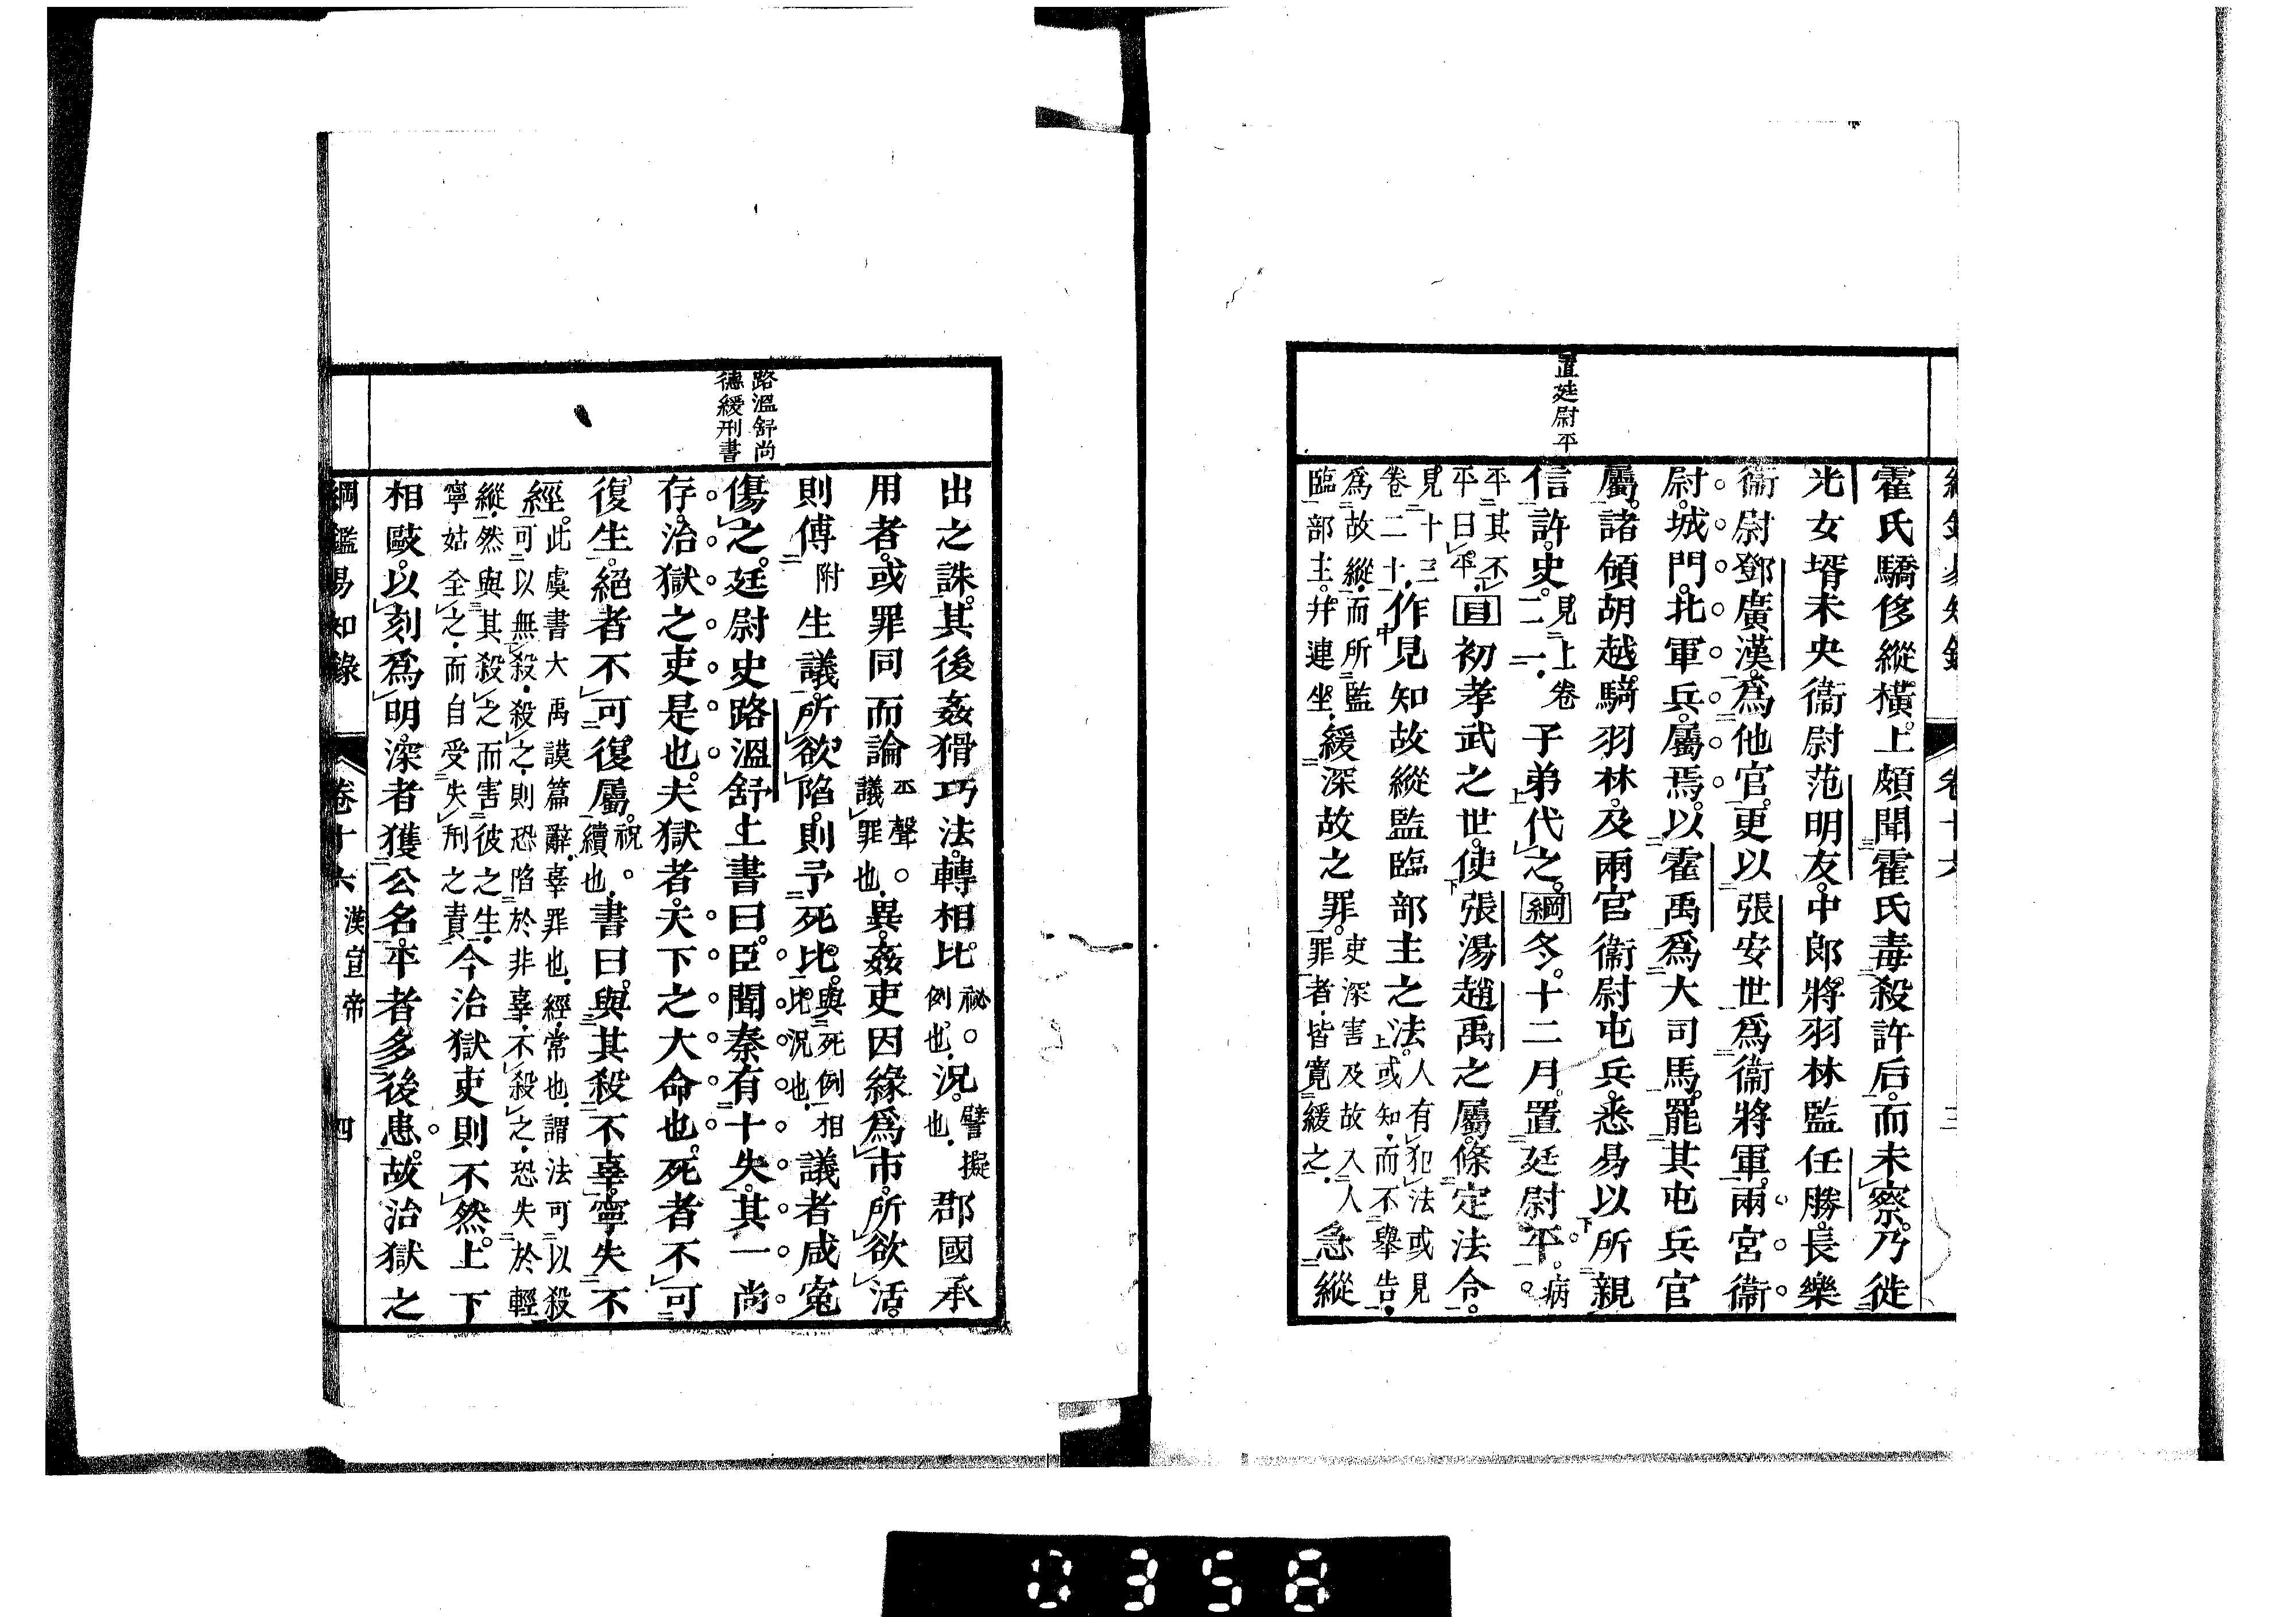 綱鑑易知錄 卷十六 三
置廷尉平
霍氏驕侈縱橫。上頗聞霍氏毒殺許后。而未察。乃徙
光女壻未央衞尉范明友。中郎將羽林監任勝。長樂
衞尉鄧廣漢。爲他官。更以張安世爲衞將軍。兩宮衞
尉。城門。北軍兵。屬焉。以霍禹爲大司馬。罷其屯兵官
屬。諸領胡越騎羽林。及兩宮衞尉屯兵。悉易以所親
信許。史。見上卷二一。子弟代之。綱冬。十二月。置廷尉平。病。
平其不平曰平。目初孝武之世。使張湯趙禹之屬。條定法令。
見十三卷二十。作見知故縱監臨部主之法。人有犯法或見或知而不舉告。
爲故縱。而所監臨部主。幷連坐。緩深故之罪。吏深害及故入人罪者。皆寬緩之。急縱
路溫舒尚
德緩刑書
出之誅。其後姦猾巧法。轉相比。祕。例也。況。譬擬也。郡國承
用者。或罪同而論平聲。議罪也。異。姦吏因緣爲市。所欲活。
則傅附生議。所欲陷。則予死比。與死例相比況也。議者咸寃
傷之。廷尉史路溫舒上書曰。臣聞秦有十失。其一尚
存。治獄之吏是也。夫獄者。天下之大命也。死者不可
復生。絕者不可復屬。祝。續也。書曰。與其殺不辜。寧失不
經。此虞書大禹謨篇辭。辜罪也。經。常也。謂法可以殺可以無殺。殺之則恐陷於非辜。不殺之。恐失於輕
縱。然與其殺之而害彼之生。寧姑全之。而自受失刑之責。今治獄吏則不然。上下
相敺。以刻爲明。深者獲公名。平者多後患。故治獄之
綱鑑易知錄 卷十六 漢宣帝 四
0358